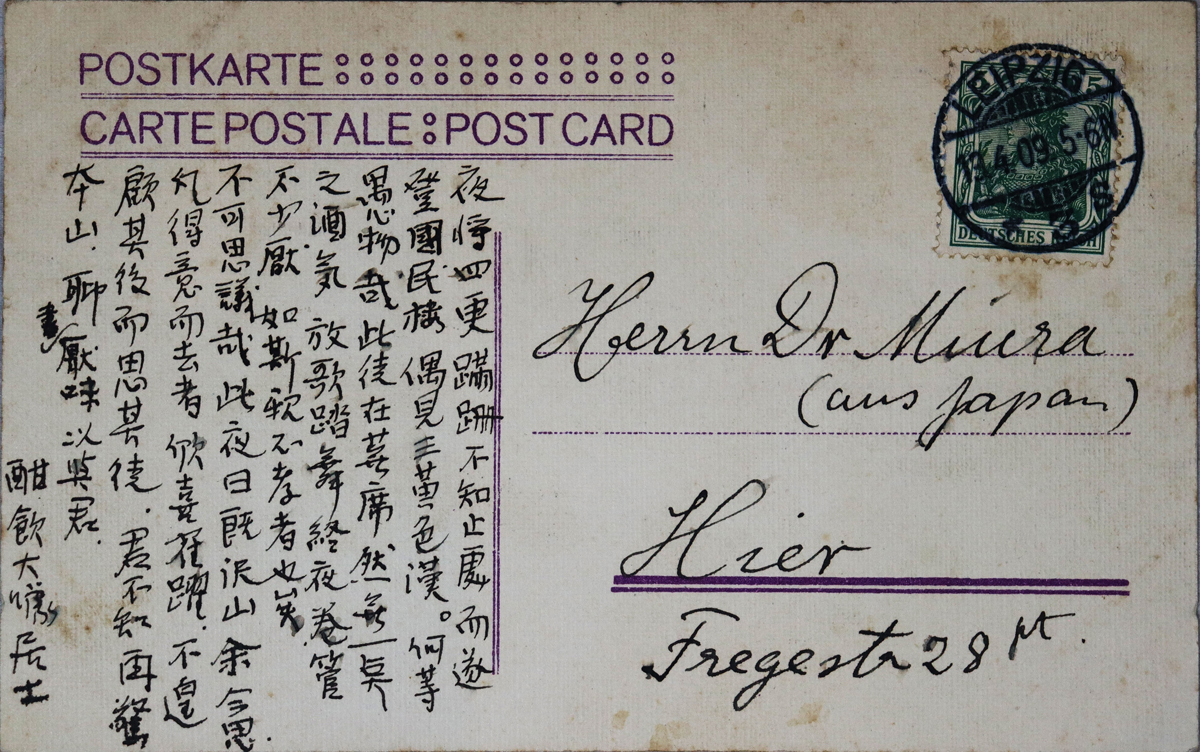 POSTKARTE
CARTE POSTALE : POST CARD
LEIPZIG
13.4.09.5-6N
3 s
DEUTSCHES REICH
Herrn Dr Miura
(aus Japan)
Hier
Fregestr 28 pt.
夜将四更蹣跚不知止處而遂
登國民楼偶見三黄色漢。何等
愚物哉此徒在蓆席然無一臭
之酒氣放歌踏舞終夜卷管
不少厭如斯親不孝者也
不可思議哉此夜日既沢山余今思
凡得意而去者欣喜雀躍、不遑
顧其後而思其徒、君不知再驚
本山、聊厭味以与君、
酣飲大噱居士